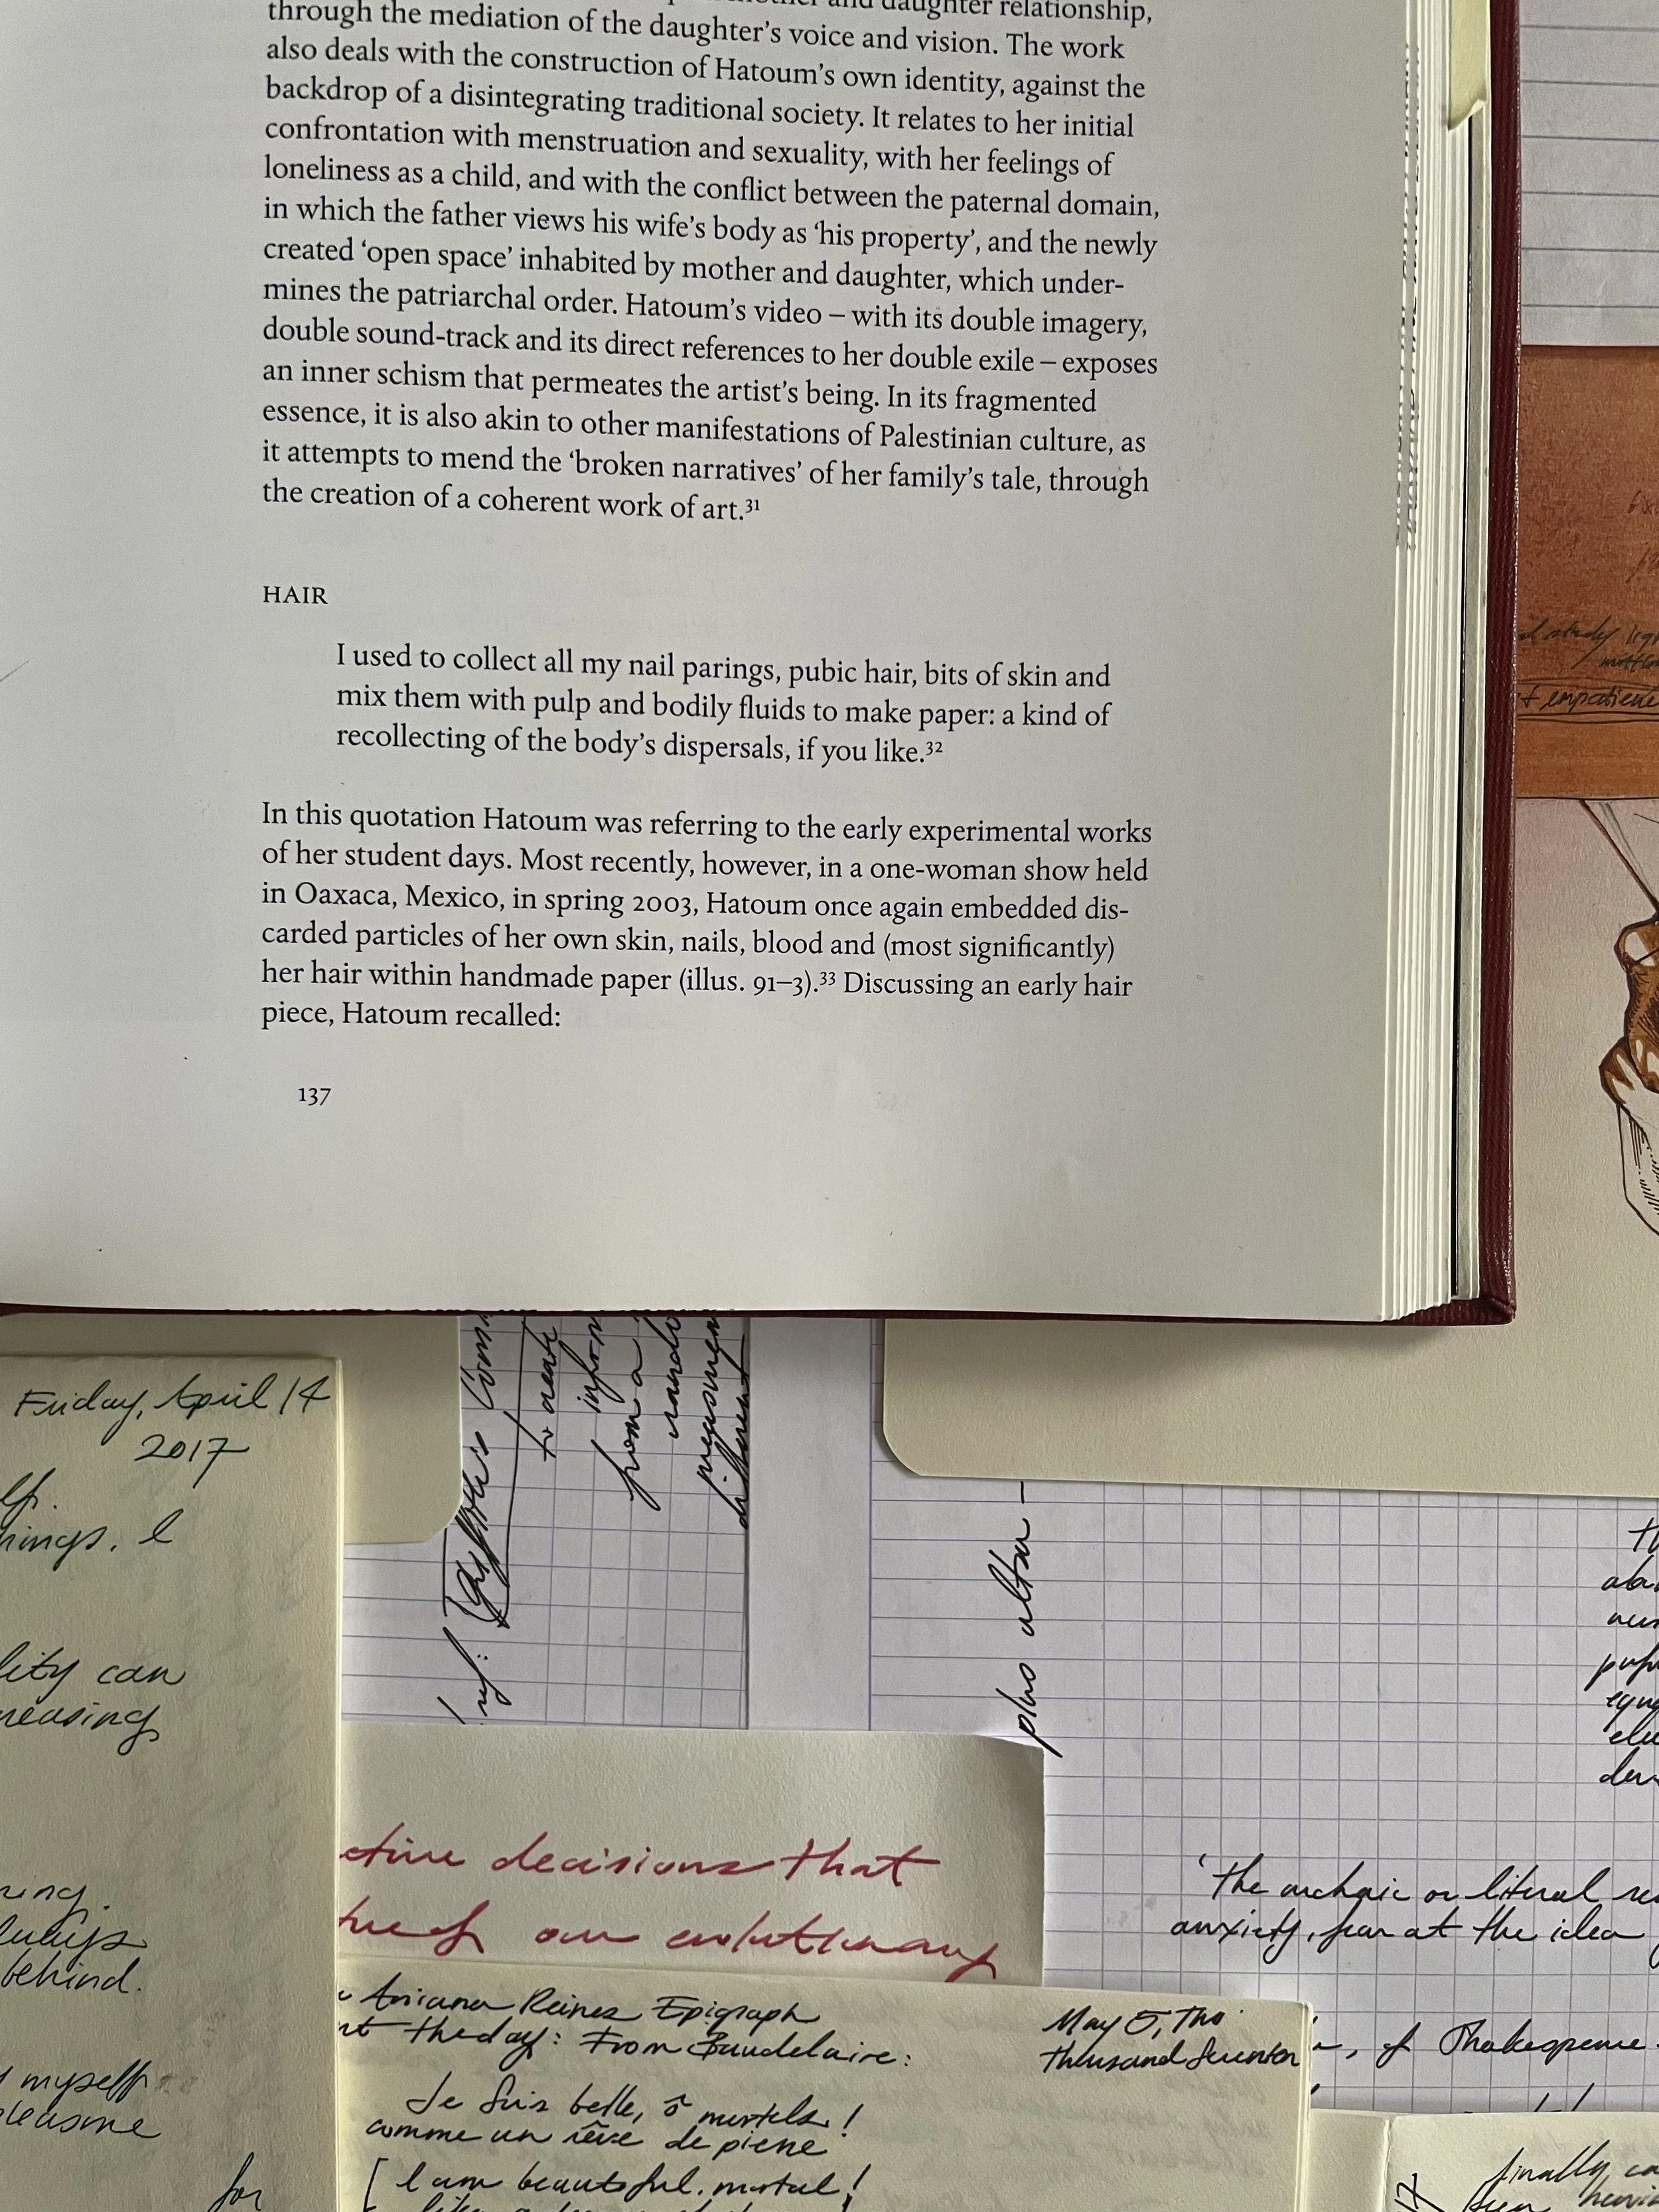 and daughter relationship,
through the mediation of the daughter's voice and vision. The work
also deals with the construction of Hatoum's own identity, against the
backdrop of a disintegrating traditional society. It relates to her initial
confrontation with menstruation and sexuality, with her feelings of
loneliness as a child, and with the conflict between the paternal domain,
in which the father views his wife's body as ‘his property’, and the newly
created ‘open space’ inhabited by mother and daughter, which under-
mines the patriarchal order. Hatoum's video – with its double imagery,
double sound-track and its direct references to her double exile – exposes
an inner schism that permeates the artist's being. In its fragmented
essence, it is also akin to other manifestations of Palestinian culture, as
it attempts to mend the ‘broken narratives’ of her family's tale, through
the creation of a coherent work of art.³¹
HAIR
I used to collect all my nail parings, pubic hair, bits of skin and
mix them with pulp and bodily fluids to make paper: a kind of
recollecting of the body's dispersals, if you like.³²
In this quotation Hatoum was referring to the early experimental works
of her student days. Most recently, however, in a one-woman show held
in Oaxaca, Mexico, in spring 2003, Hatoum once again embedded dis-
carded particles of her own skin, nails, blood and (most significantly)
her hair within handmade paper (illus. 91–3).³³ Discussing an early hair
piece, Hatoum recalled:
137
Friday, April 14
2017
hings. I
lity can
reasing
behind.
myself
for
to create
from a
plus ultra –
decisions that
our evolutionary
‘The archaic or literal
anxiety, fear at the idea
of Shakespeare
Ariana Reines Epigraph
the day: From Baudelaire:
May 5, Two
Thousand Seventeen
Je suis belle, ô mortels!
comme un rêve de pierre
[I am beautiful, mortal!
finally